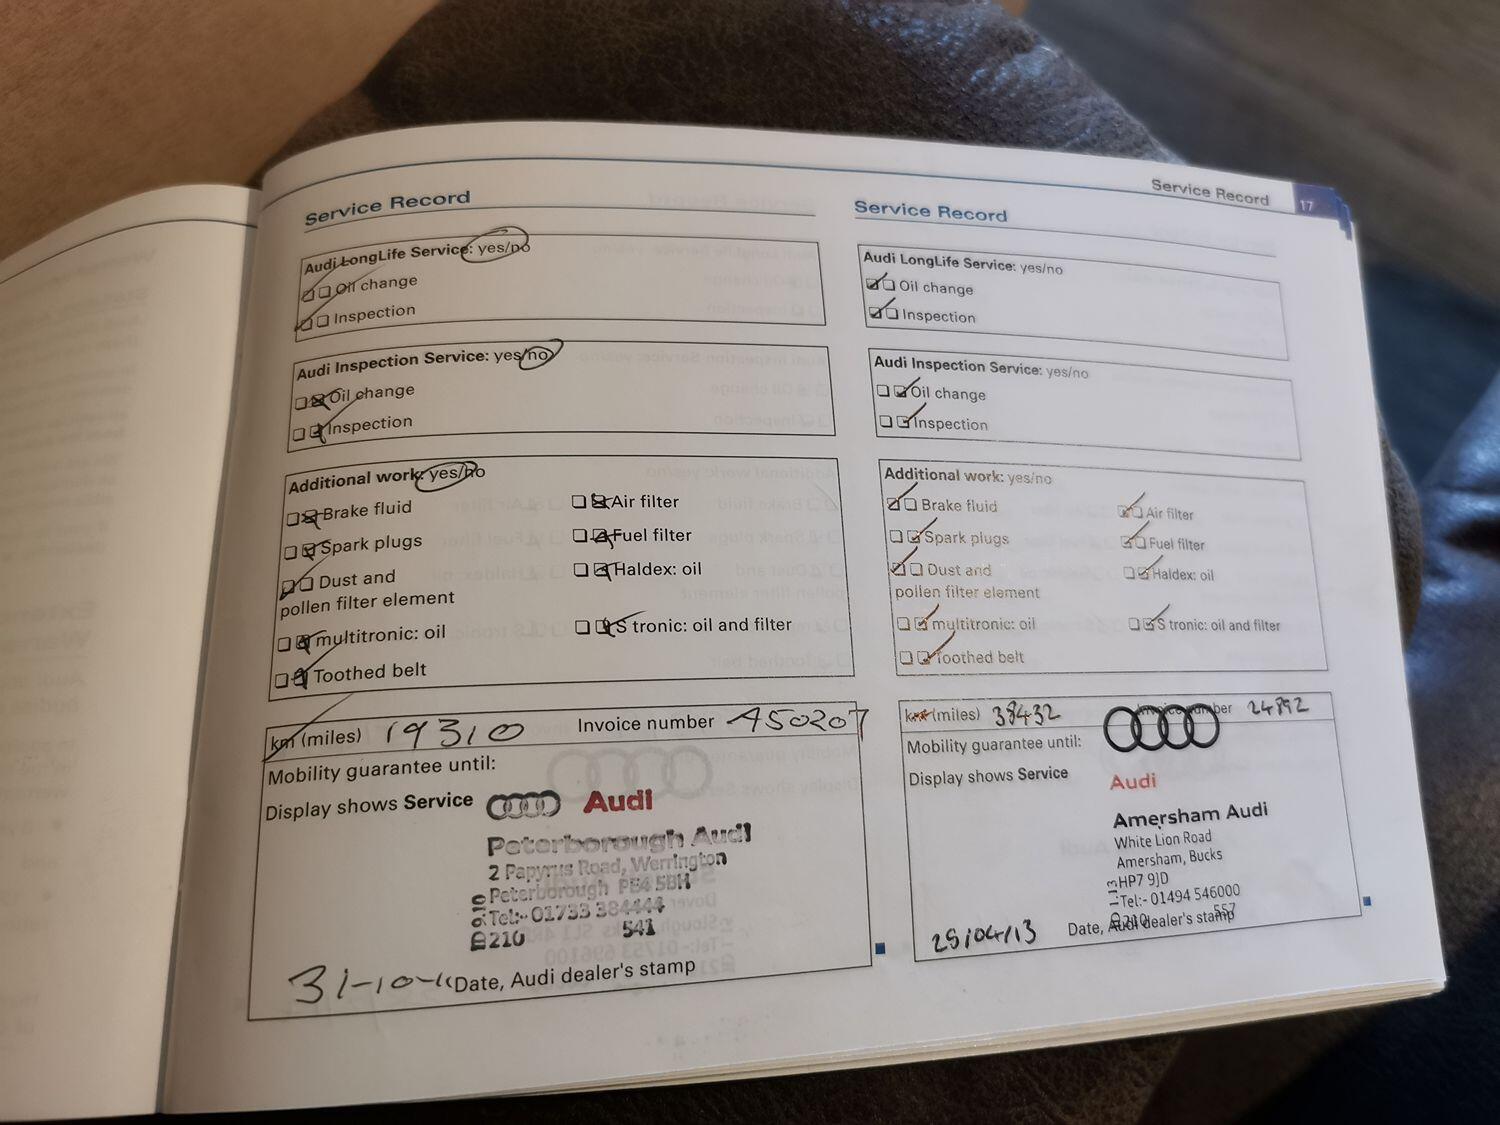 Service Record 17
Service Record
Audi LongLife Service: yes/no
Oil change
Inspection
Audi Inspection Service: yes/no
Oil change
Inspection
Additional work: yes/no
Brake fluid
Air filter
Spark plugs
Fuel filter
Dust and
pollen filter element
Haldex: oil
multitronic: oil
S tronic: oil and filter
Toothed belt
km (miles) 19310 Invoice number A50207
Mobility guarantee until:
Display shows Service
Audi
Peterborough Audi
2 Papyrus Road, Werrington
Peterborough PE4 5BH
Tel:- 01733 384444
210 541
31-10-11 Date, Audi dealer's stamp
Service Record
Audi LongLife Service: yes/no
Oil change
Inspection
Audi Inspection Service: yes/no
Oil change
Inspection
Additional work: yes/no
Brake fluid
Air filter
Spark plugs
Fuel filter
Dust and
pollen filter element
Haldex: oil
multitronic: oil
S tronic: oil and filter
Toothed belt
km (miles) 38432 Invoice number 24892
Mobility guarantee until:
Display shows Service
Audi
Amersham Audi
White Lion Road
Amersham, Bucks
HP7 9JD
Tel:- 01494 546000
210 557
25/04/13 Date, Audi dealer's stamp